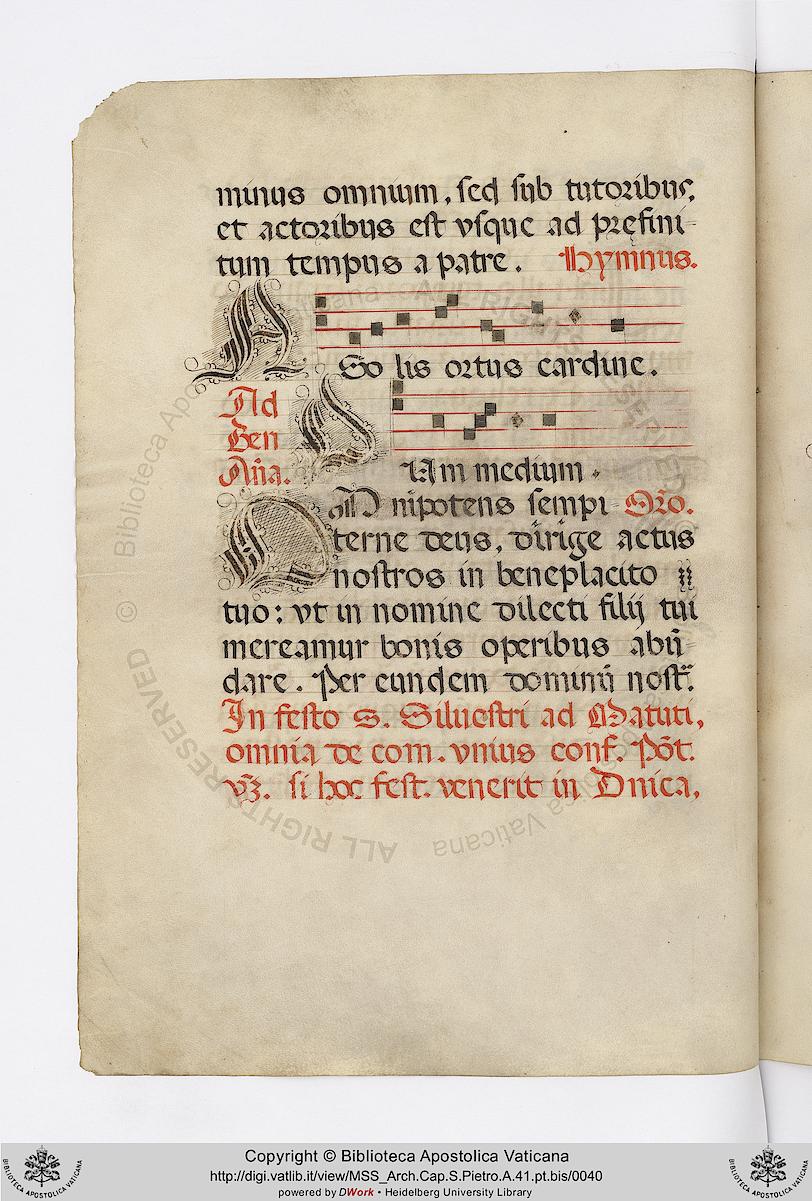 minus omnium, sed sub tutoribus,
et actoribus est vsque ad prefini-
tum tempus a patre. Hymnus.
A
So lis ortus cardine.
Ad
Ben
Aña.
D
Um medium.
OMnipotens sempi- Orõ.
terne deus, dirige actus
nostros in beneplacito
tuo: vt in nomine dilecti filij tui
mereamur bonis operibus abũ-
dare. Per eundem dominũ nostr̃.
In festo S. Siluestri ad Matuti,
omnia de com. vnius conf. Põt.
vz. si hoc fest. venerit in Dnica,
© Biblioteca Apostolica Vaticana
ALL RIGHTS RESERVED
Copyright © Biblioteca Apostolica Vaticana
http://digi.vatlib.it/view/MSS_Arch.Cap.S.Pietro.A.41.pt.bis/0040
powered by DWork • Heidelberg University Library
BIBLIOTECA APOSTOLICA VATICANA
BIBLIOTECA APOSTOLICA VATICANA